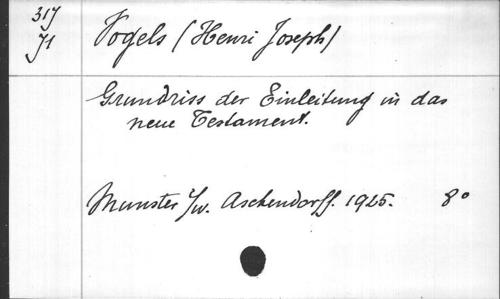 317
J1
Vogels (Henri Joseph)
Grundriss der Einleitung in das
neue Testament.
Munster i/w. Aschendorff. 1925. 8°